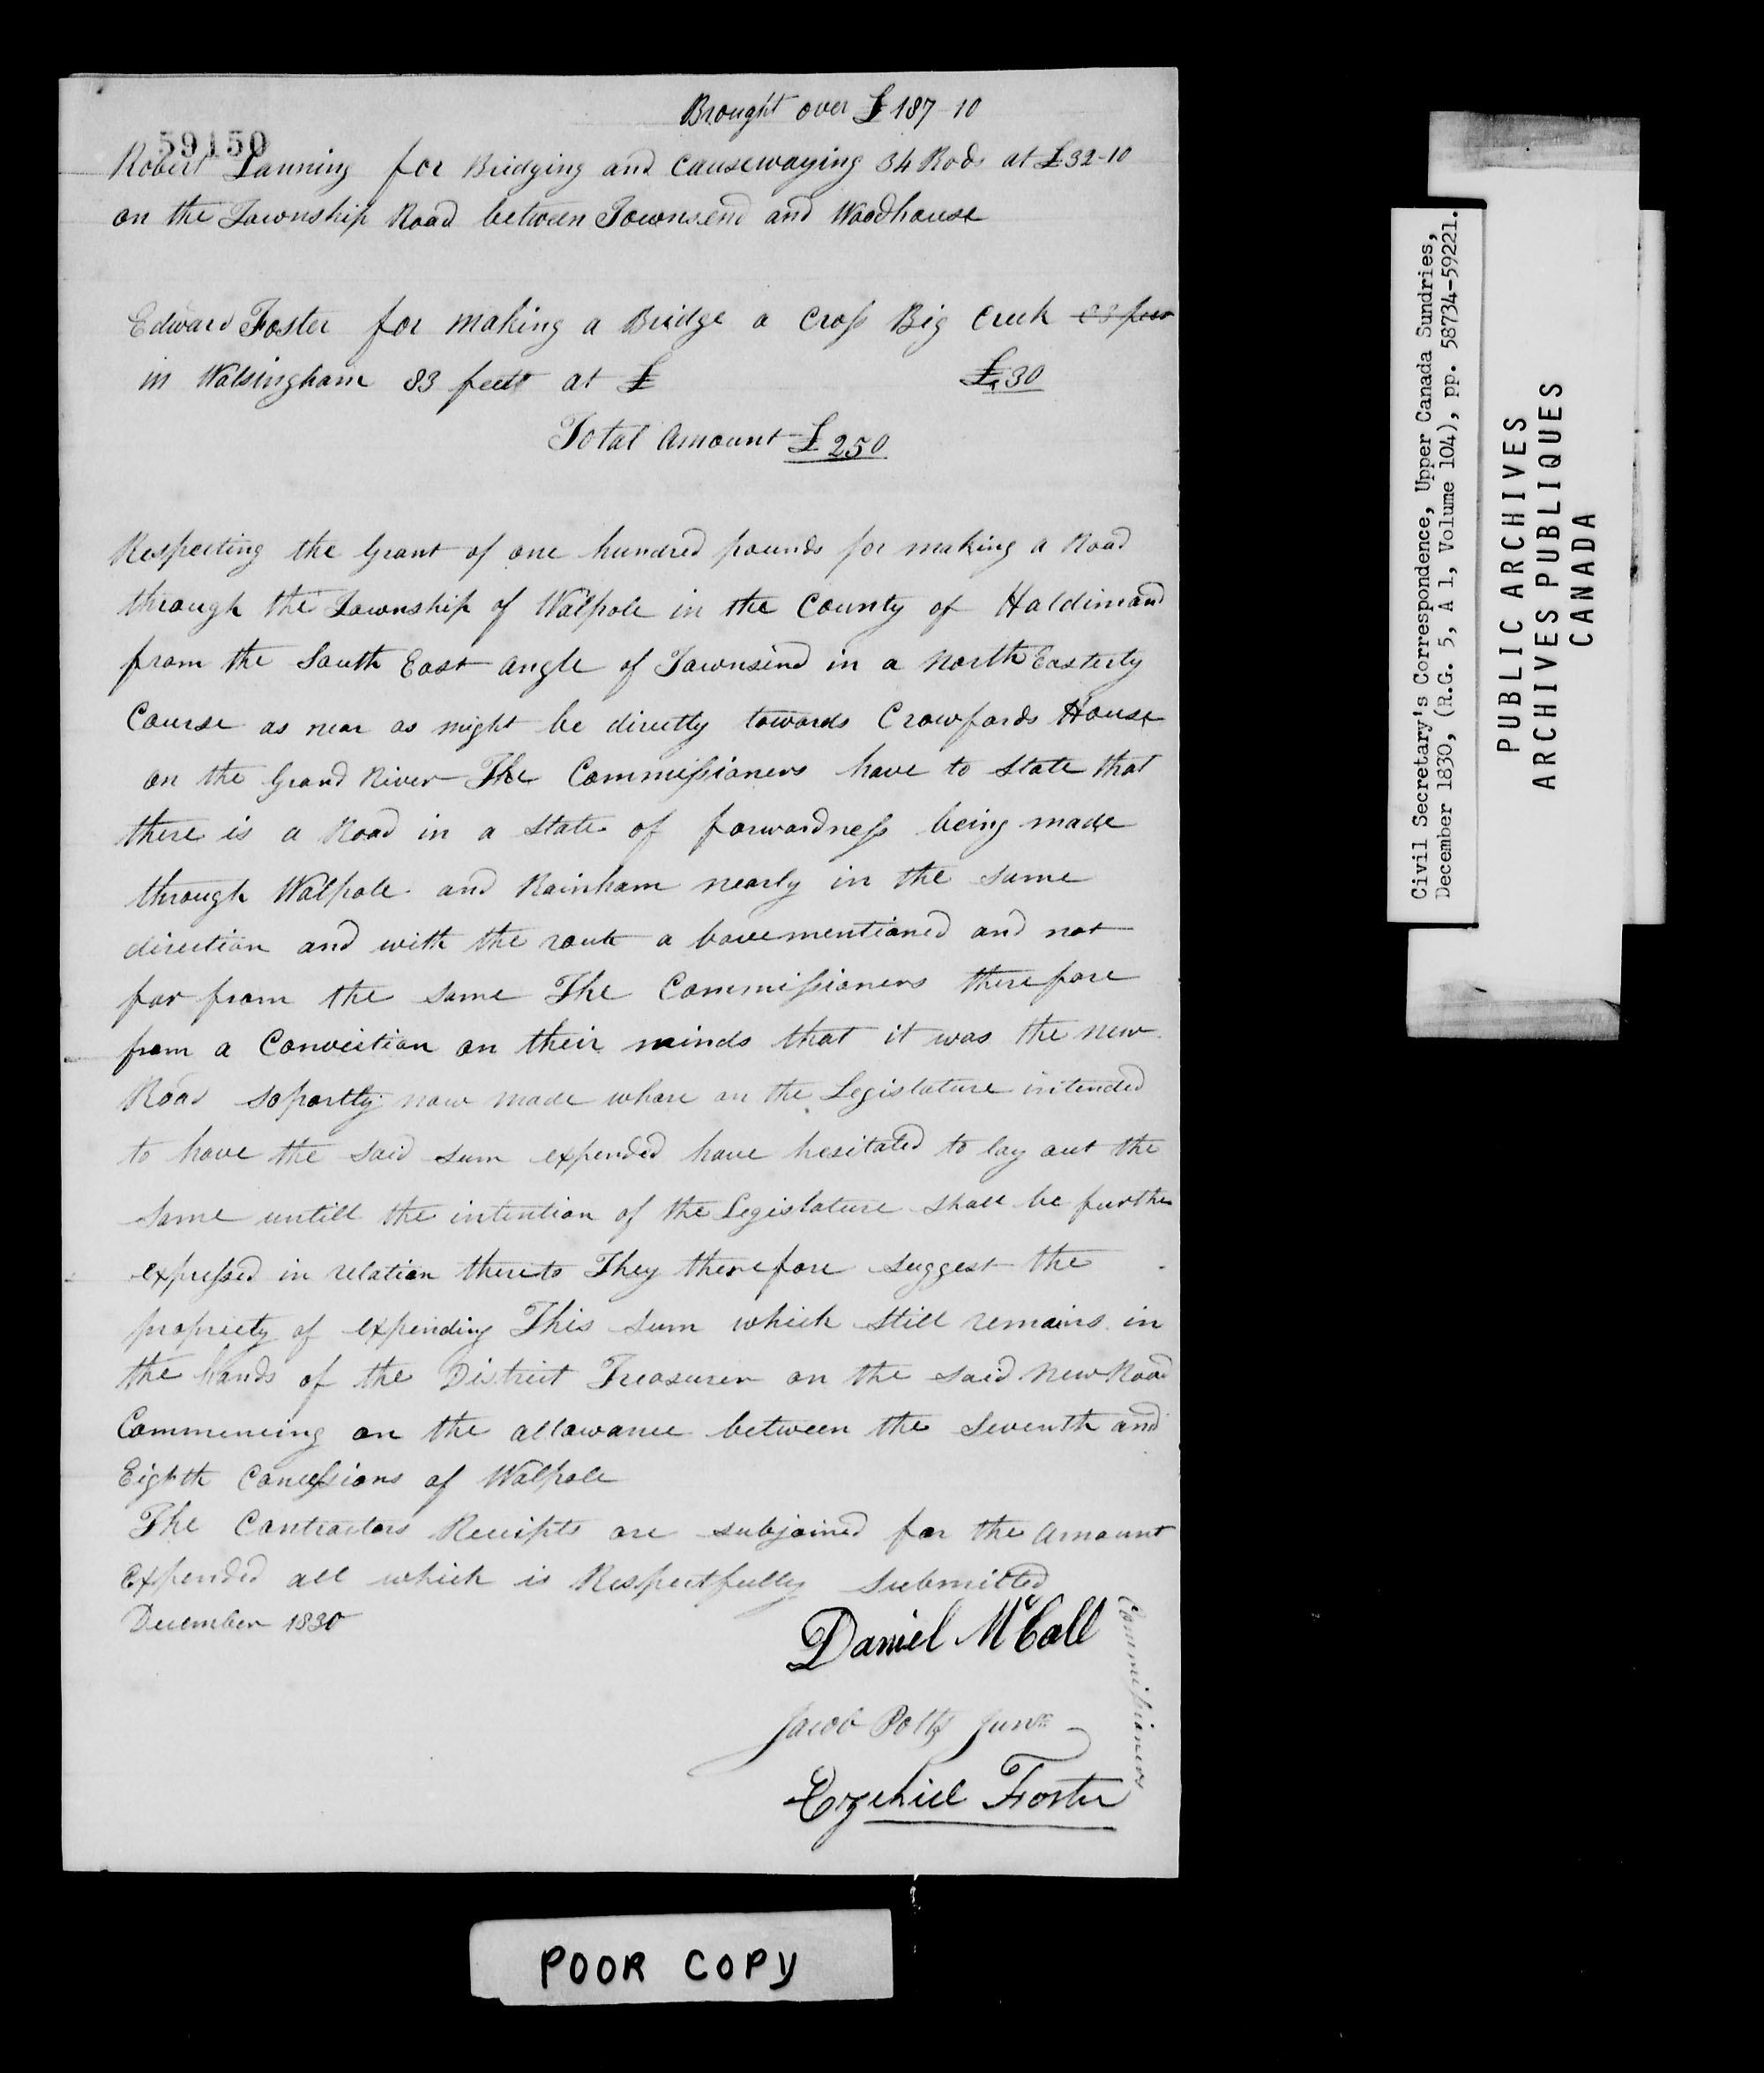 Brought over £187-10
59150
Robert Lanning for Bridging and Causewaying 34 Rods at £32-10
on the Township Road between Townsend and Woodhouse
Edward Foster for making a Bridge a Cross Big Creek
in Walsingham 83 feet at £ £30
Total Amount £250
Respecting the Grant of one hundred pounds for making a Road
through the Township of Walpole in the County of Haldimand
from the South East angle of Townsend in a North Easterly
Course as near as might be directly towards Crawfords House
on the Grand River The Commissioners have to state that
there is a Road in a state of forwardness being made
through Walpole and Rainham nearly in the same
direction and with the route a bovementioned and not
far from the same The Commissioners therefore
from a Conviction on their minds that it was the new
Road so partly now made whare on the Legislature intended
to have the said sum expended have hesitated to lay out the
same untill the intention of the Legislature shall be further
expressed in relation thereto They therefore suggest the
propriety of expending This sum which still remains in
the hands of the District Treasurer on the said New Road
Commencing on the allowance between the Seventh and
Eighth Concessions of Walpole
The Contractors Receipts are subjoined for the Amount
Expended all which is Respectfully Submitted
December 1830
Daniel McCall
Jacob Potts Junr
Ezekiel Foster
Commissioners
Civil Secretary's Correspondence, Upper Canada Sundries,
December 1830, (R.G. 5, A 1, Volume 104), pp. 58734-59221.
PUBLIC ARCHIVES
ARCHIVES PUBLIQUES
CANADA
POOR COPY